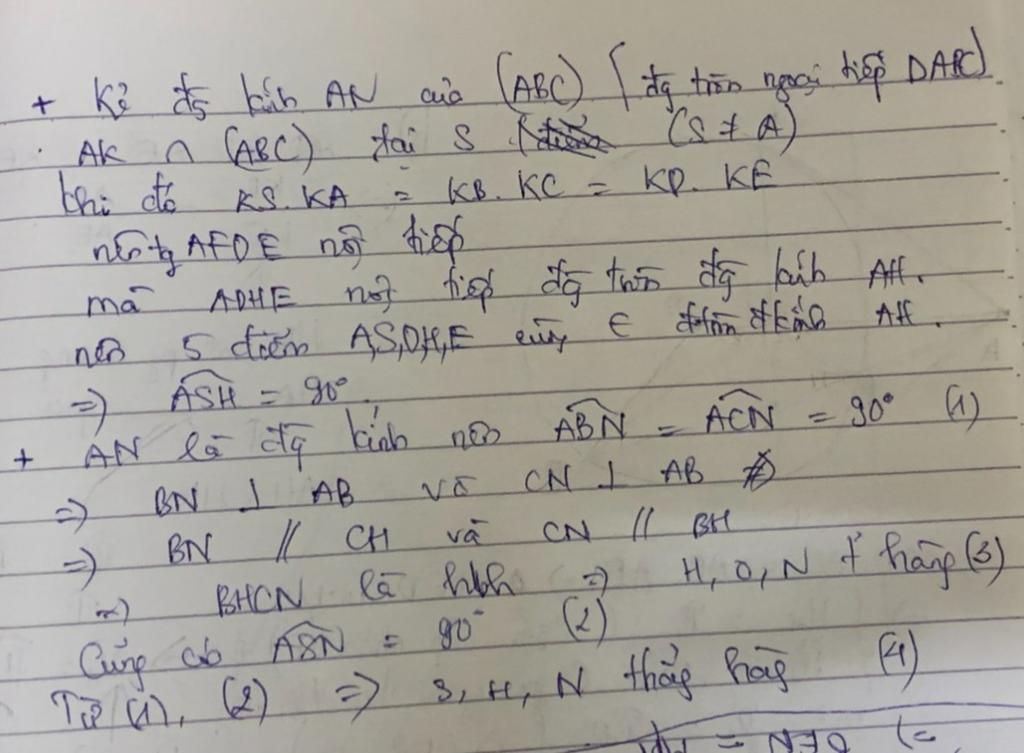 + Kẻ đg kính AN của (ABC) (đg tròn ngoại tiếp ΔABC)
AK ∩ (ABC) tại S (S ≠ A)
khi đó KS.KA = KB.KC = KD.KE
nên tg AFDE nội tiếp
mà ADHE nội tiếp đg tròn đg kính AH.
nên 5 điểm A,S,D,H,E cùng ∈ đtròn đkính AH.
=> ASH = 90°.
+ AN là đg kính nên ABN = ACN = 90° (1)
=> BN ⊥ AB và CN ⊥ AB
=> BN // CH và CN // BH
=> BHCN là hbh => H, O, N t hàng (3)
Cũng có ASN = 90° (2)
Từ (1), (2) => S, H, N thẳng hàng (4)